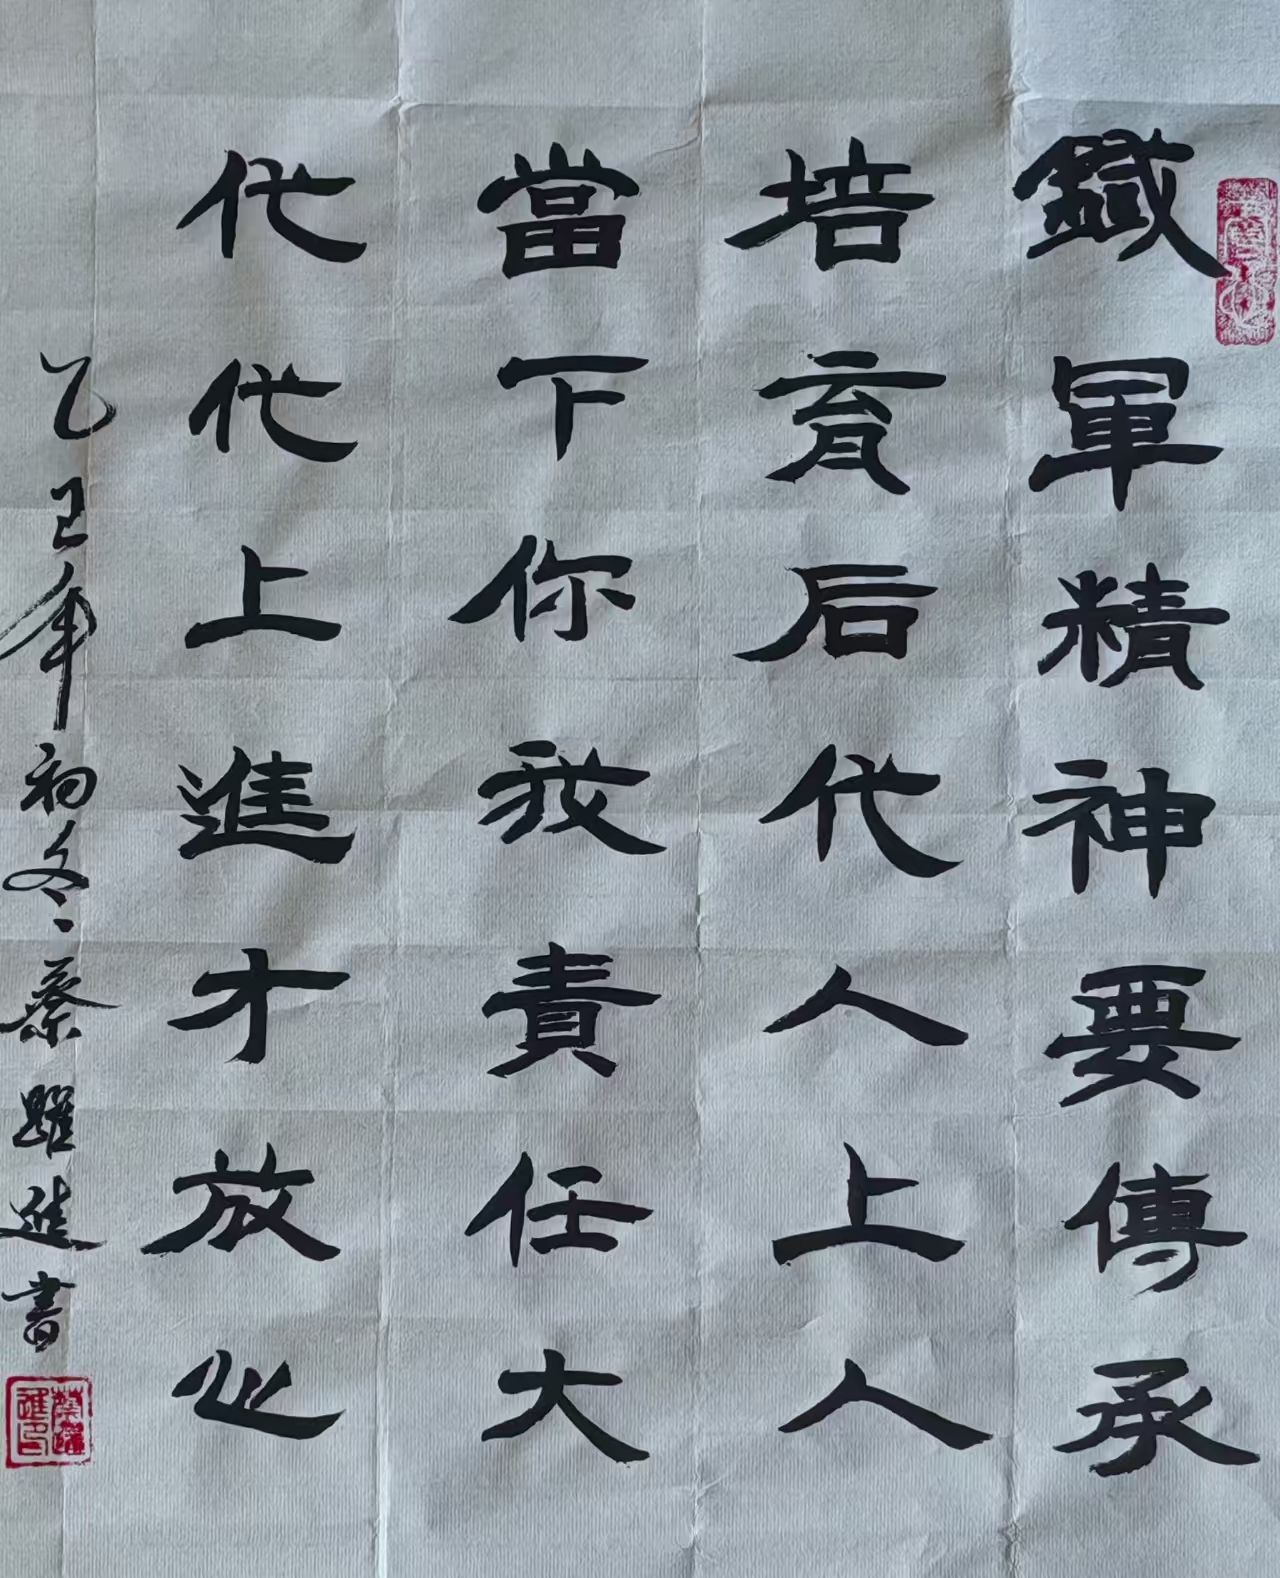 鐵軍精神要傳承
培育后代人上人
當下你我責任大
代代上進才放心
乙巳年初冬蔡躍進書
蔡躍進印